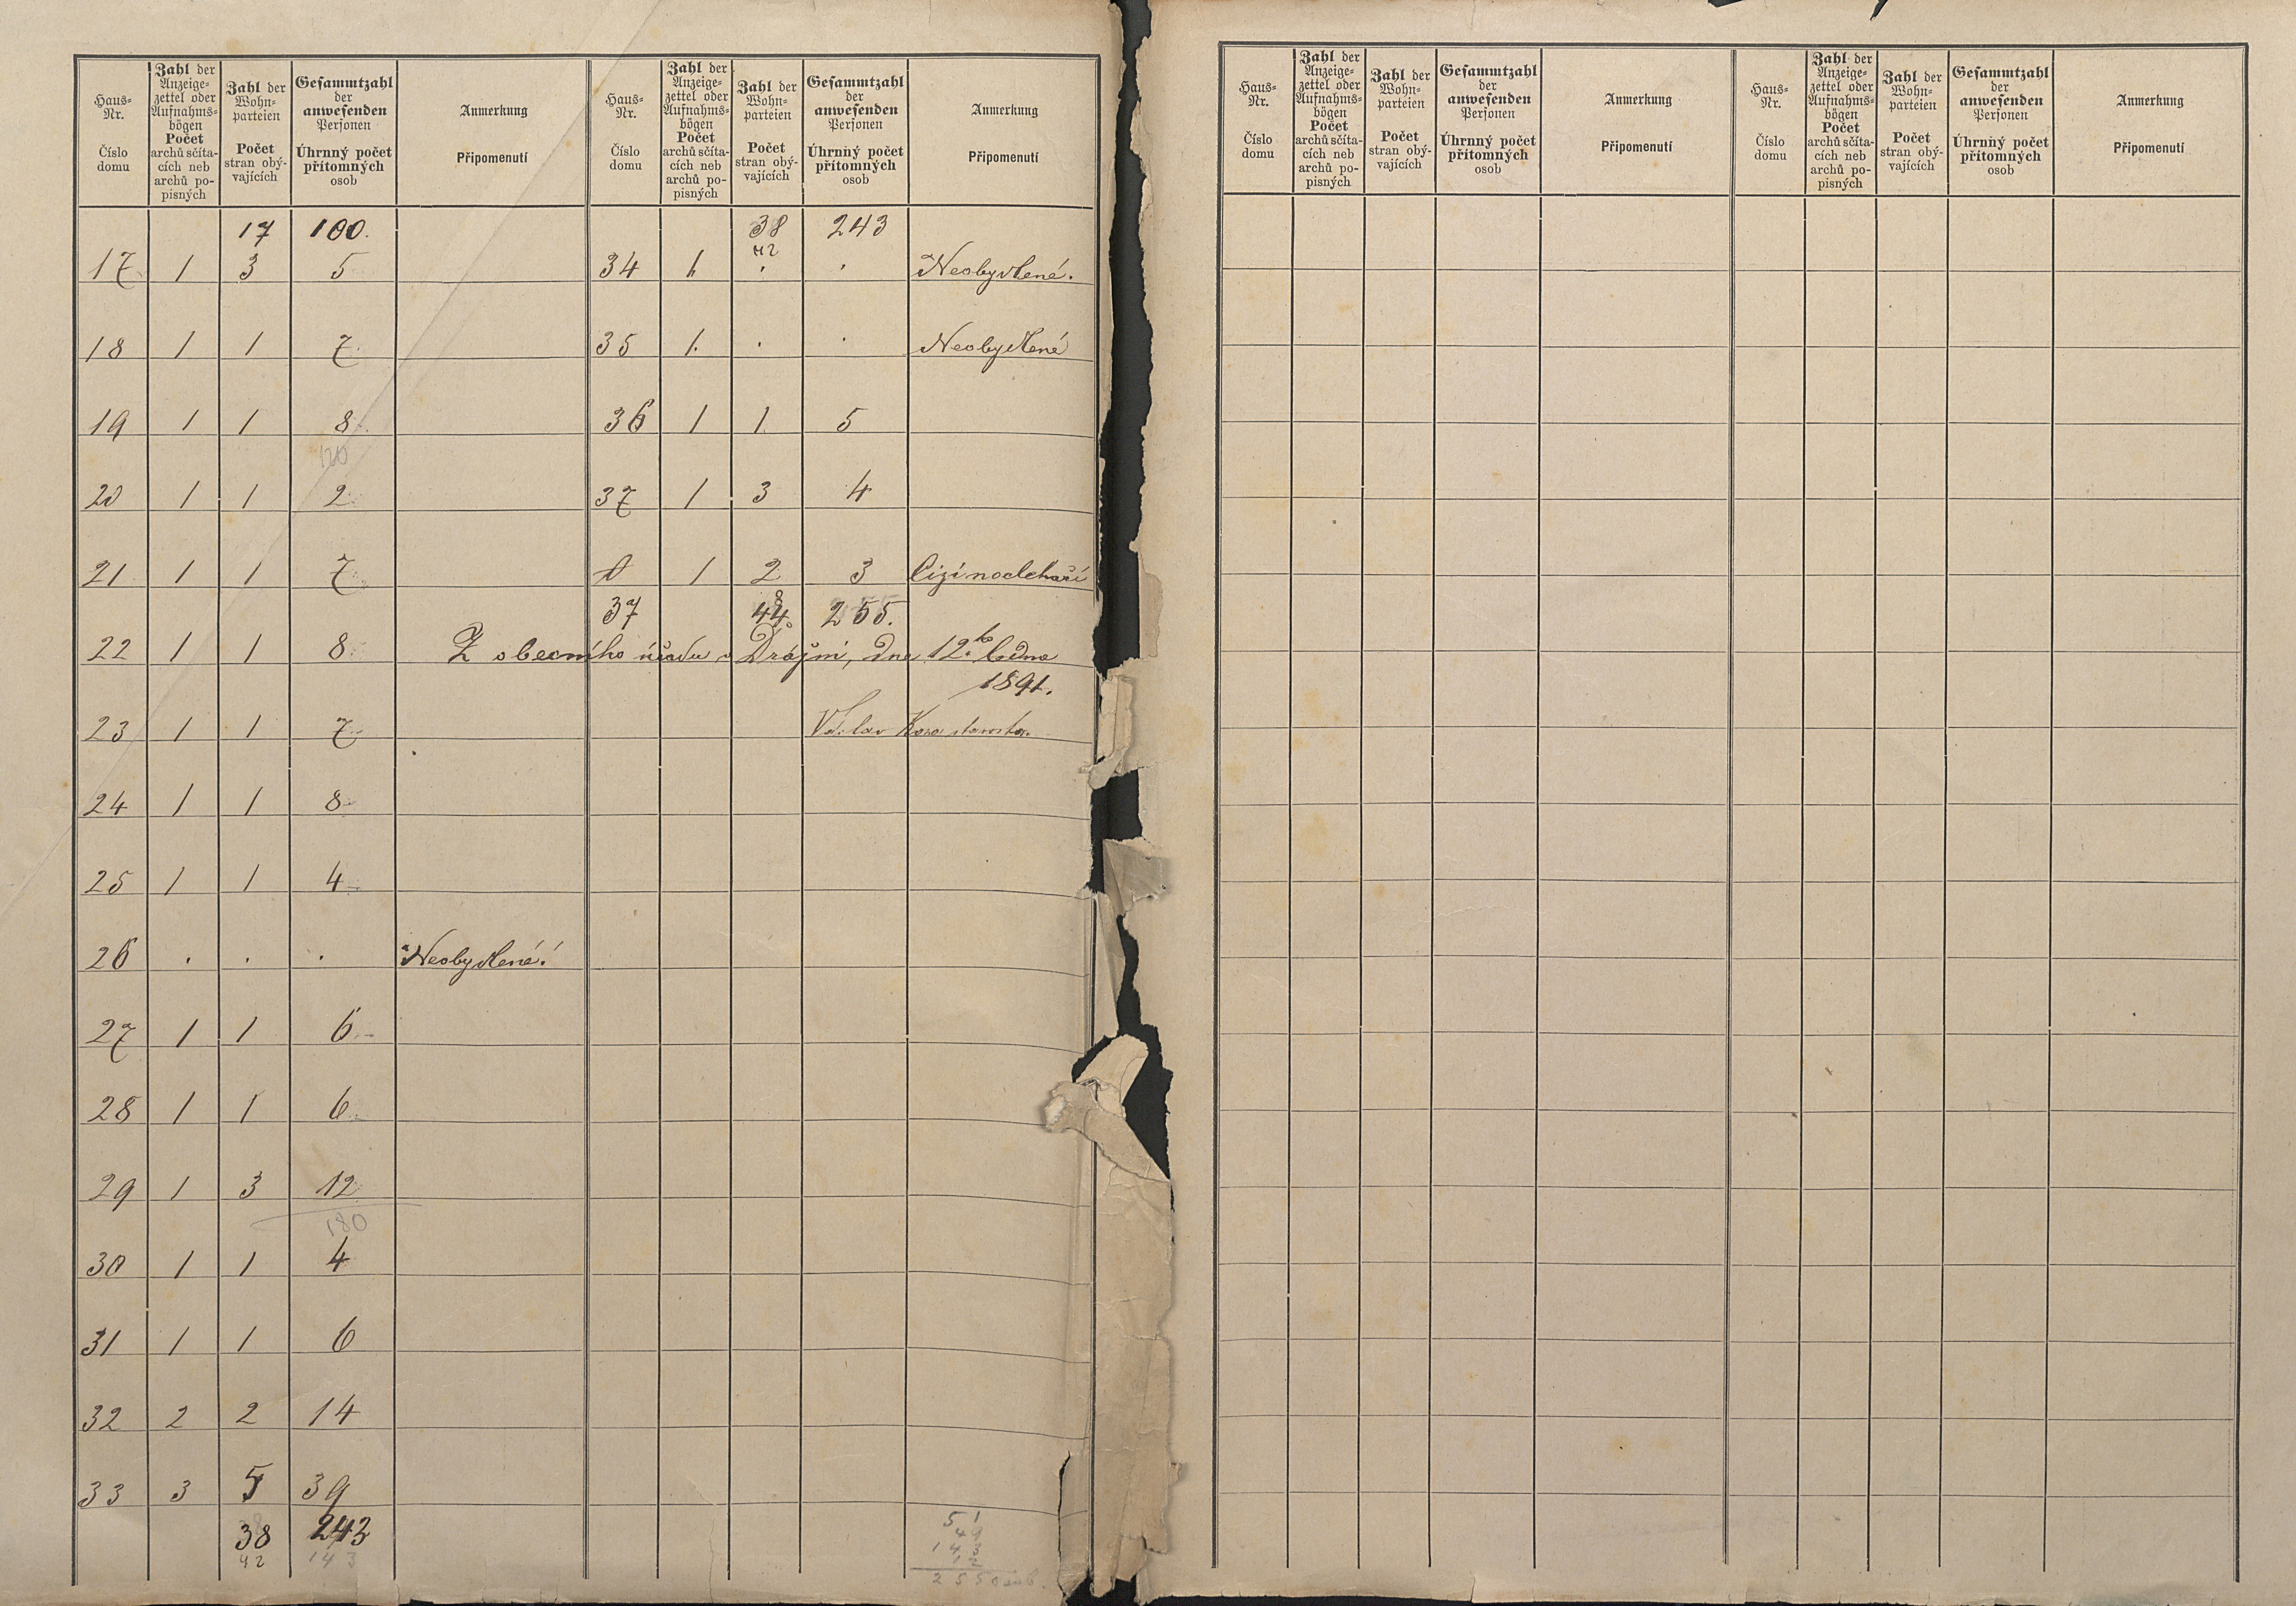 Haus-Nr. Číslo domu | Zahl der Anzeige-zettel oder Aufnahms-bögen Počet archů sčíta-cích neb archů po-pisných | Zahl der Wohn-parteien Počet stran obý-vajících | Gesammtzahl der anwesenden Personen Úhrnný počet přítomných osob | Anmerkung Připomenutí
17 100.
17 1 3 5
18 1 1 7
19 1 1 8
120
20 1 1 2
21 1 1 7
22 1 1 8
23 1 1 7
24 1 1 8
25 1 1 4
26 . . . Neobydlené!
27 1 1 6
28 1 1 6
29 1 3 12
180
30 1 1 4
31 1 1 6
32 2 2 14
33 3 5 39
38 243
42 143
Haus-Nr. Číslo domu | Zahl der Anzeige-zettel oder Aufnahms-bögen Počet archů sčíta-cích neb archů po-pisných | Zahl der Wohn-parteien Počet stran obý-vajících | Gesammtzahl der anwesenden Personen Úhrnný počet přítomných osob | Anmerkung Připomenutí
38 243
42
34 1 . . Neobydlené.
35 1. . . Neobydlené
36 1 1 5
37 1 3 4
0 1 2 3 Cizí nocleháři
8
37 44. 255.
Z obecního úřadu v Drážni, dne 12ho ledna
1891.
Václav starosta.
51
49
143
12
255 osob.
Haus-Nr. Číslo domu | Zahl der Anzeige-zettel oder Aufnahms-bögen Počet archů sčíta-cích neb archů po-pisných | Zahl der Wohn-parteien Počet stran obý-vajících | Gesammtzahl der anwesenden Personen Úhrnný počet přítomných osob | Anmerkung Připomenutí
Haus-Nr. Číslo domu | Zahl der Anzeige-zettel oder Aufnahms-bögen Počet archů sčíta-cích neb archů po-pisných | Zahl der Wohn-parteien Počet stran obý-vajících | Gesammtzahl der anwesenden Personen Úhrnný počet přítomných osob | Anmerkung Připomenutí